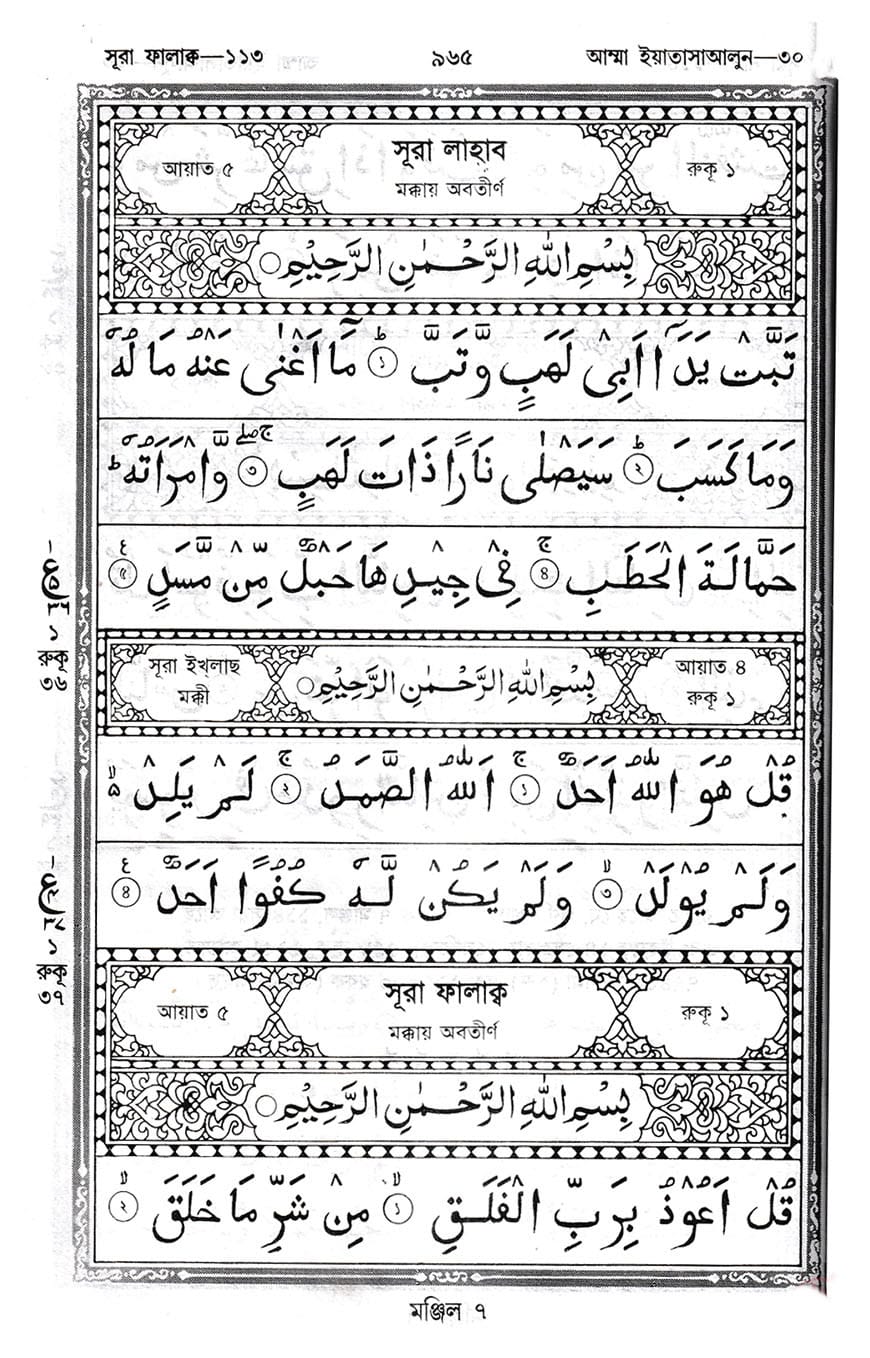 সূরা ফালাক্ব—১১৩ ৯৬৫ আম্মা ইয়াতাসাআলুন—৩০
আয়াত ৫ সূরা লাহাব রুকূ ১
মক্কায় অবতীর্ণ
بِسْمِ اللهِ الرَّحْمٰنِ الرَّحِيْمِ ○
تَبَّتْ يَدَآ اَبِىْ لَهَبٍ وَّتَبَّ ؕ ﴿১﴾ مَآ اَغْنٰى عَنْهُ مَالُهٗ
وَمَا كَسَبَ ؕ ﴿২﴾ سَيَصْلٰى نَارًا ذَاتَ لَهَبٍ ۚۖ ﴿৩﴾ وَّامْرَاَتُهٗ ؕ
حَمَّالَةَ الْحَطَبِ ۚ ﴿৪﴾ فِىْ جِيْدِهَا حَبْلٌ مِّنْ مَّسَدٍ ﴿৫﴾ ع
রুকূ ১
৩৬
সূরা ইখলাছ بِسْمِ اللهِ الرَّحْمٰنِ الرَّحِيْمِ ○ আয়াত ৪
মক্কী রুকূ ১
قُلْ هُوَ اللهُ اَحَدٌ ۚ ﴿১﴾ اَللهُ الصَّمَدُ ۚ ﴿২﴾ لَمْ يَلِدْ ۙ۬
وَلَمْ يُوْلَدْ ۙ ﴿৩﴾ وَلَمْ يَكُنْ لَّهٗ كُفُوًا اَحَدٌ ﴿৪﴾ ع
রুকূ ১
৩৭
আয়াত ৫ সূরা ফালাক্ব রুকূ ১
মক্কায় অবতীর্ণ
بِسْمِ اللهِ الرَّحْمٰنِ الرَّحِيْمِ ○
قُلْ اَعُوْذُ بِرَبِّ الْفَلَقِ ۙ ﴿১﴾ مِنْ شَرِّ مَا خَلَقَ ۙ ﴿২﴾
মঞ্জিল ৭